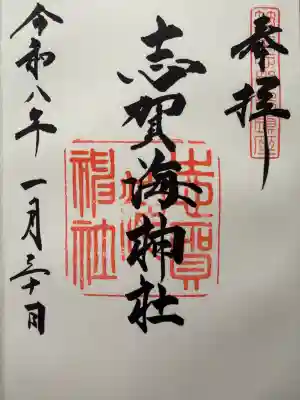 奉拝
志賀海神社
令和八年一月三十日
志賀海神社